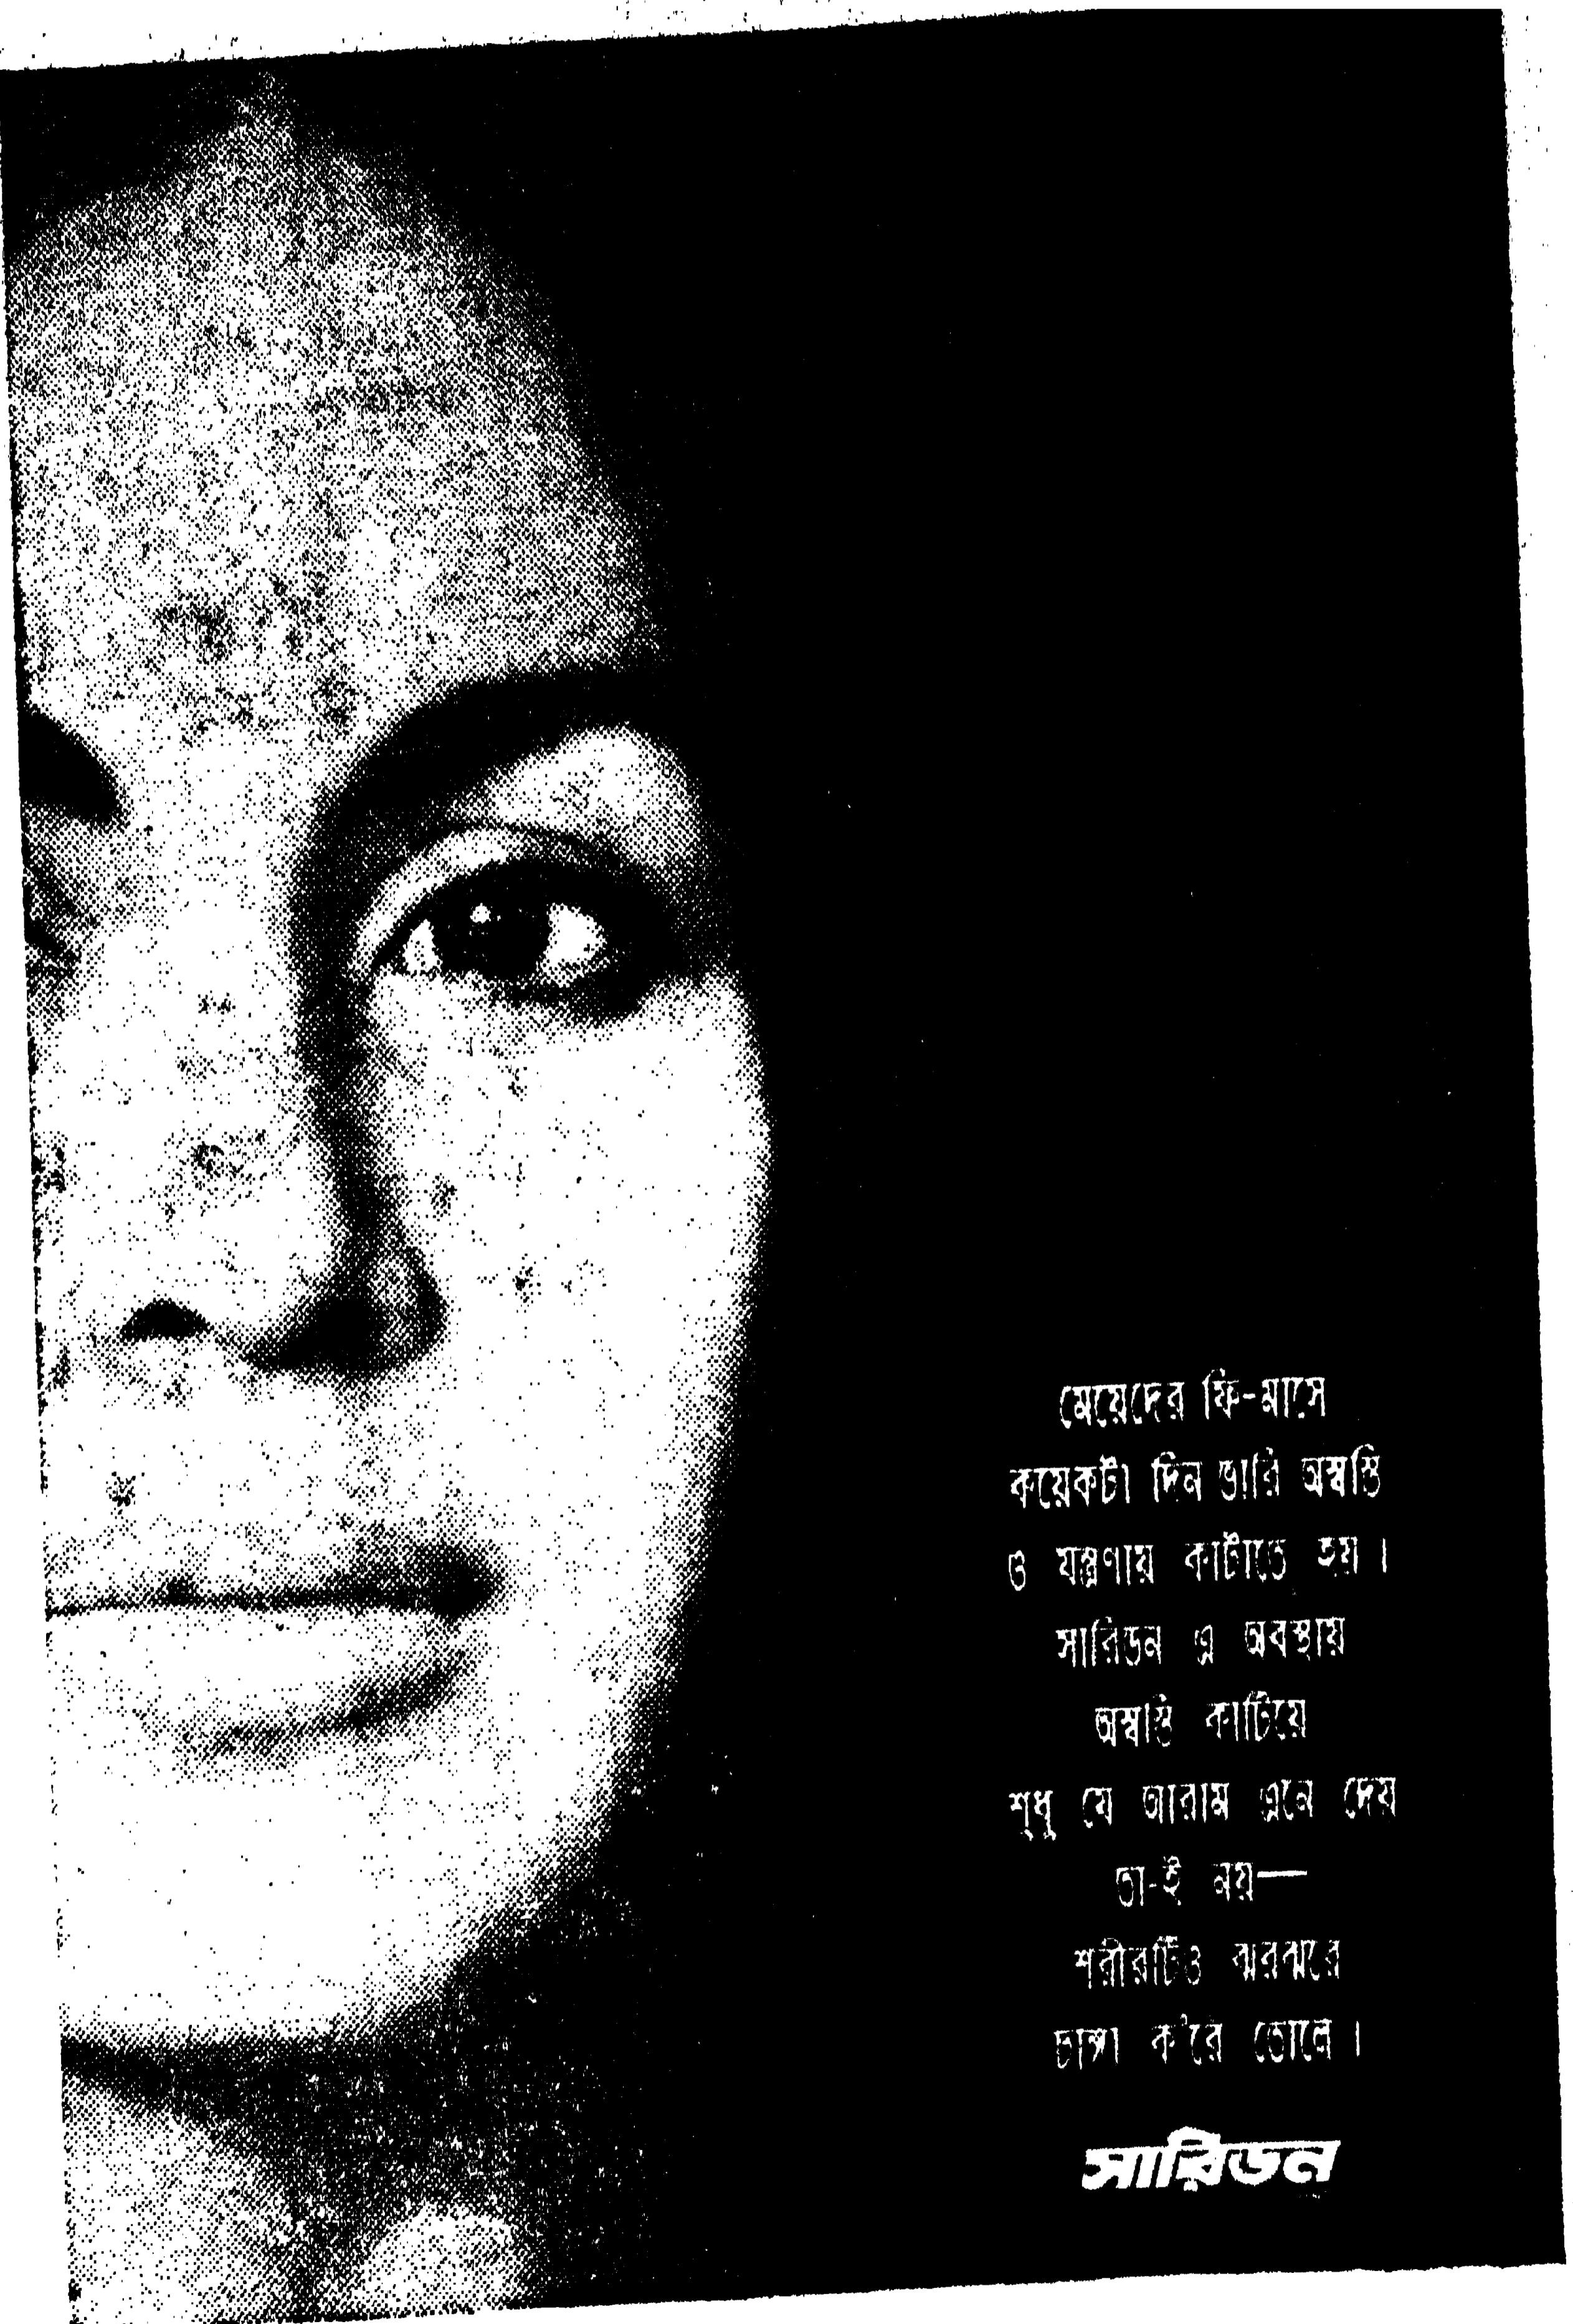 মেয়েদের ফি-মাসে
কয়েকটা দিন ভারি অস্বস্তি
ও যন্ত্রণায় কাটাতে হয় ।
সারিডন এ অবস্থায়
অস্বস্তি কাটিয়ে
শুধু যে আরাম এনে দেয়
তা-ই নয়—
শরীরটিও ঝরঝরে
চাঙ্গা ক'রে তোলে ।
সারিডন